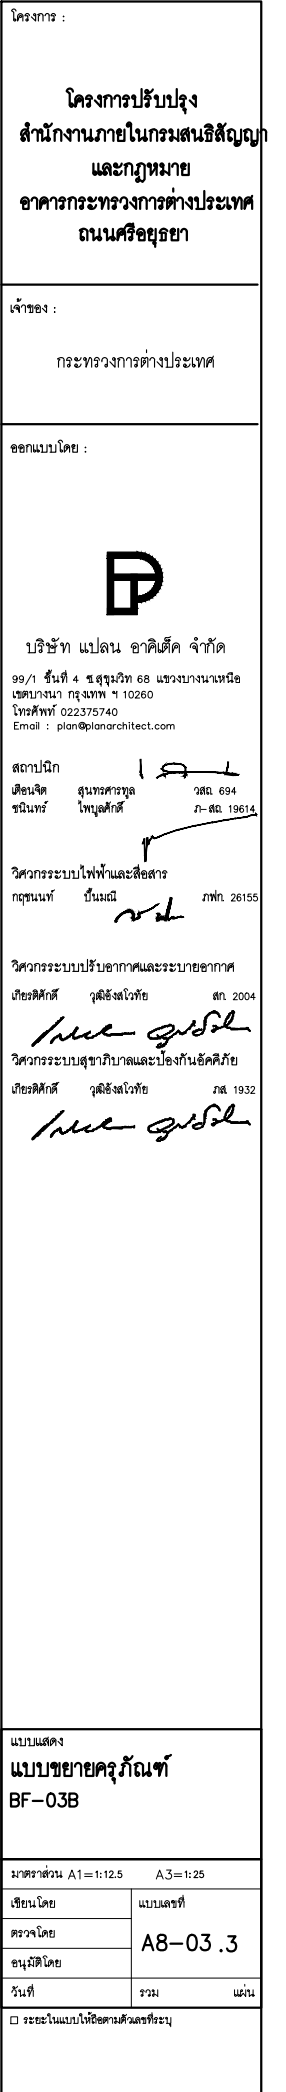 โครงการ :
โครงการปรับปรุง
สำนักงานภายในกรมสนธิสัญญา
และกฎหมาย
อาคารกระทรวงการต่างประเทศ
ถนนศรีอยุธยา
เจ้าของ :
กระทรวงการต่างประเทศ
ออกแบบโดย :
บริษัท แปลน อาคิเต็ค จำกัด
99/1 ชั้นที่ 4 ซ.สุขุมวิท 68 แขวงบางนาเหนือ
เขตบางนา กรุงเทพ ฯ 10260
โทรศัพท์ 022375740
Email : plan@planarchitect.com
สถาปนิก
เตือนจิต สุนทรศารทูล วสถ. 694
ชนินทร์ ไพบูลศักดิ์ ภ-สถ. 19614
วิศวกรระบบไฟฟ้าและสื่อสาร
กฤชนนท์ ปิ้นมณี ภฟก. 26155
วิศวกรระบบปรับอากาศและระบายอากาศ
เกียรติศักดิ์ วุฒิอังสโวทัย สก. 2004
วิศวกรระบบสุขาภิบาลและป้องกันอัคคีภัย
เกียรติศักดิ์ วุฒิอังสโวทัย ภส. 1932
แบบแสดง
แบบขยายครุภัณฑ์
BF-03B
มาตราส่วน A1=1:12.5 A3=1:25
เขียนโดย แบบเลขที่
ตรวจโดย A8-03 .3
อนุมัติโดย
วันที่ รวม แผ่น
ระยะในแบบให้ถือตามตัวเลขที่ระบุ